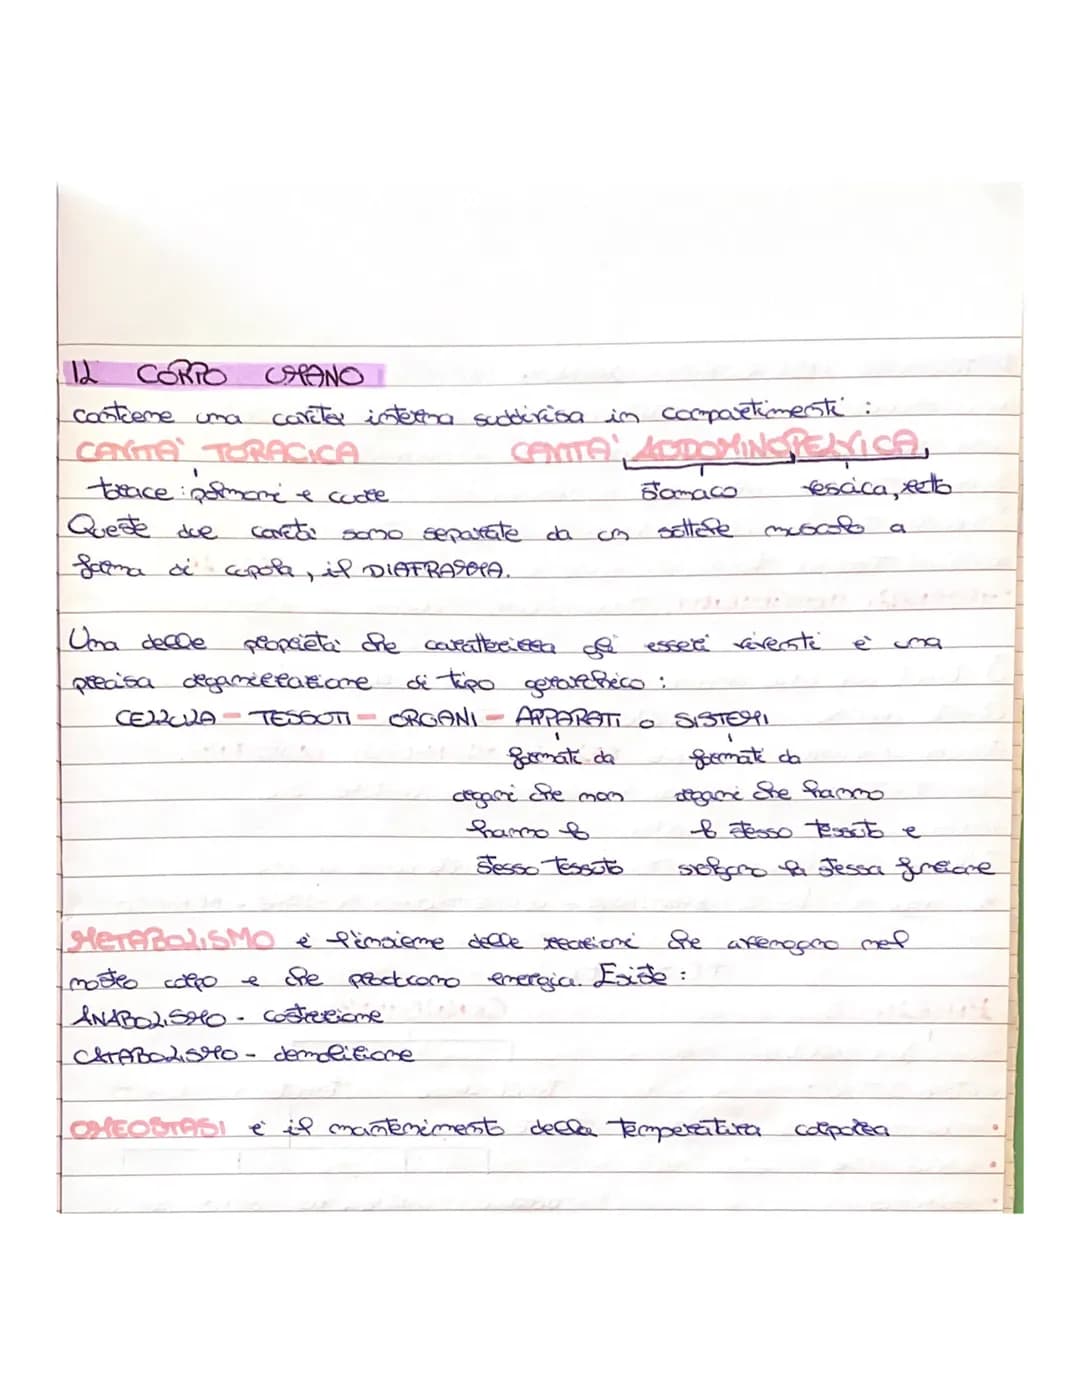 IL CORPO UMANO
contiene una cavità interna suddivisa in compartimenti :
CAVITA' TORACICA CAVITA' ADDOMINOPELVICA
torace : polmoni e cuore stomaco vescica, retto
Queste due cavità sono separate da un sottile muscolo a
forma di cupola, il DIAFRAGMA.
Una delle proprietà che caratterizza gli esseri viventi è una
precisa organizzazione di tipo gerarchico :
CELLULA - TESSUTI - ORGANI - APPARATI o SISTEMI
formati da formati da
organi che non organi che hanno
hanno lo lo stesso tessuto e
stesso tessuto svolgono la stessa funzione
METABOLISMO è l'insieme delle reazioni che avvengono nel
nostro corpo e che producono energia. Esiste :
ANABOLISMO - costruzione
CATABOLISMO - demolizione
OMEOSTASI è il mantenimento della temperatura corporea